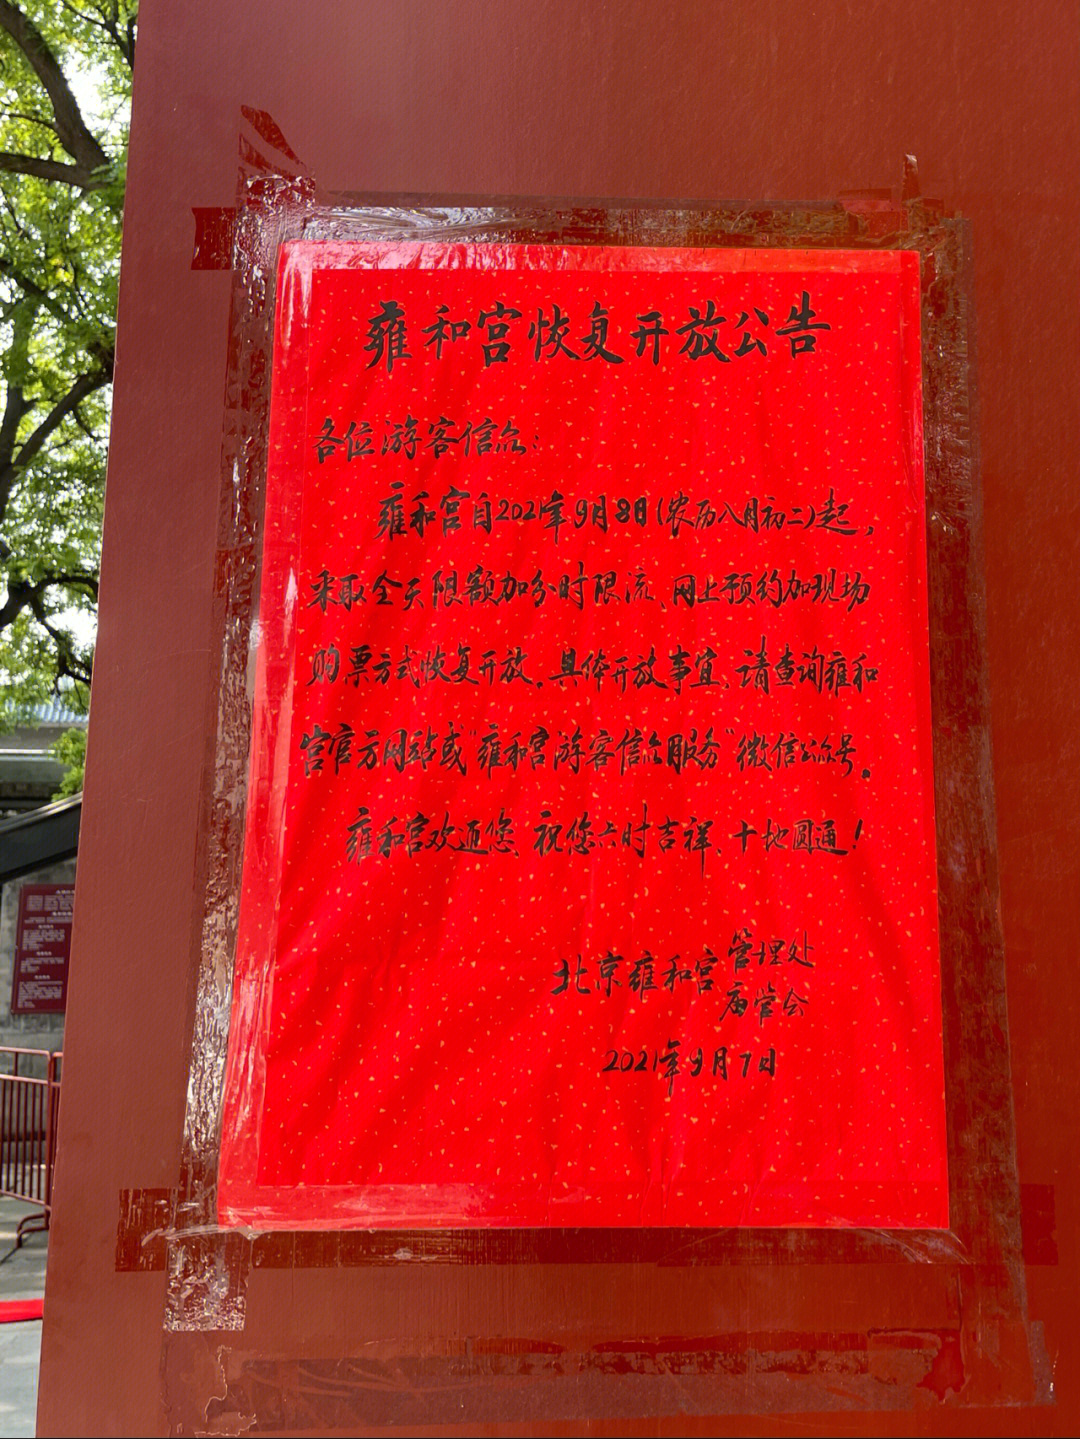 雍和宫恢复开放公告
各位游客信众：
雍和宫自2021年9月8日(农历八月初二)起，
采取全天限额加分时限流、网上预约加现场
购票方式恢复开放。具体开放事宜，请查询雍和
宫官方网站或“雍和宫游客信众服务”微信公众号。
雍和宫欢迎您、祝您六时吉祥、十地圆通！
北京雍和宫管理处
庙管会
2021年9月7日